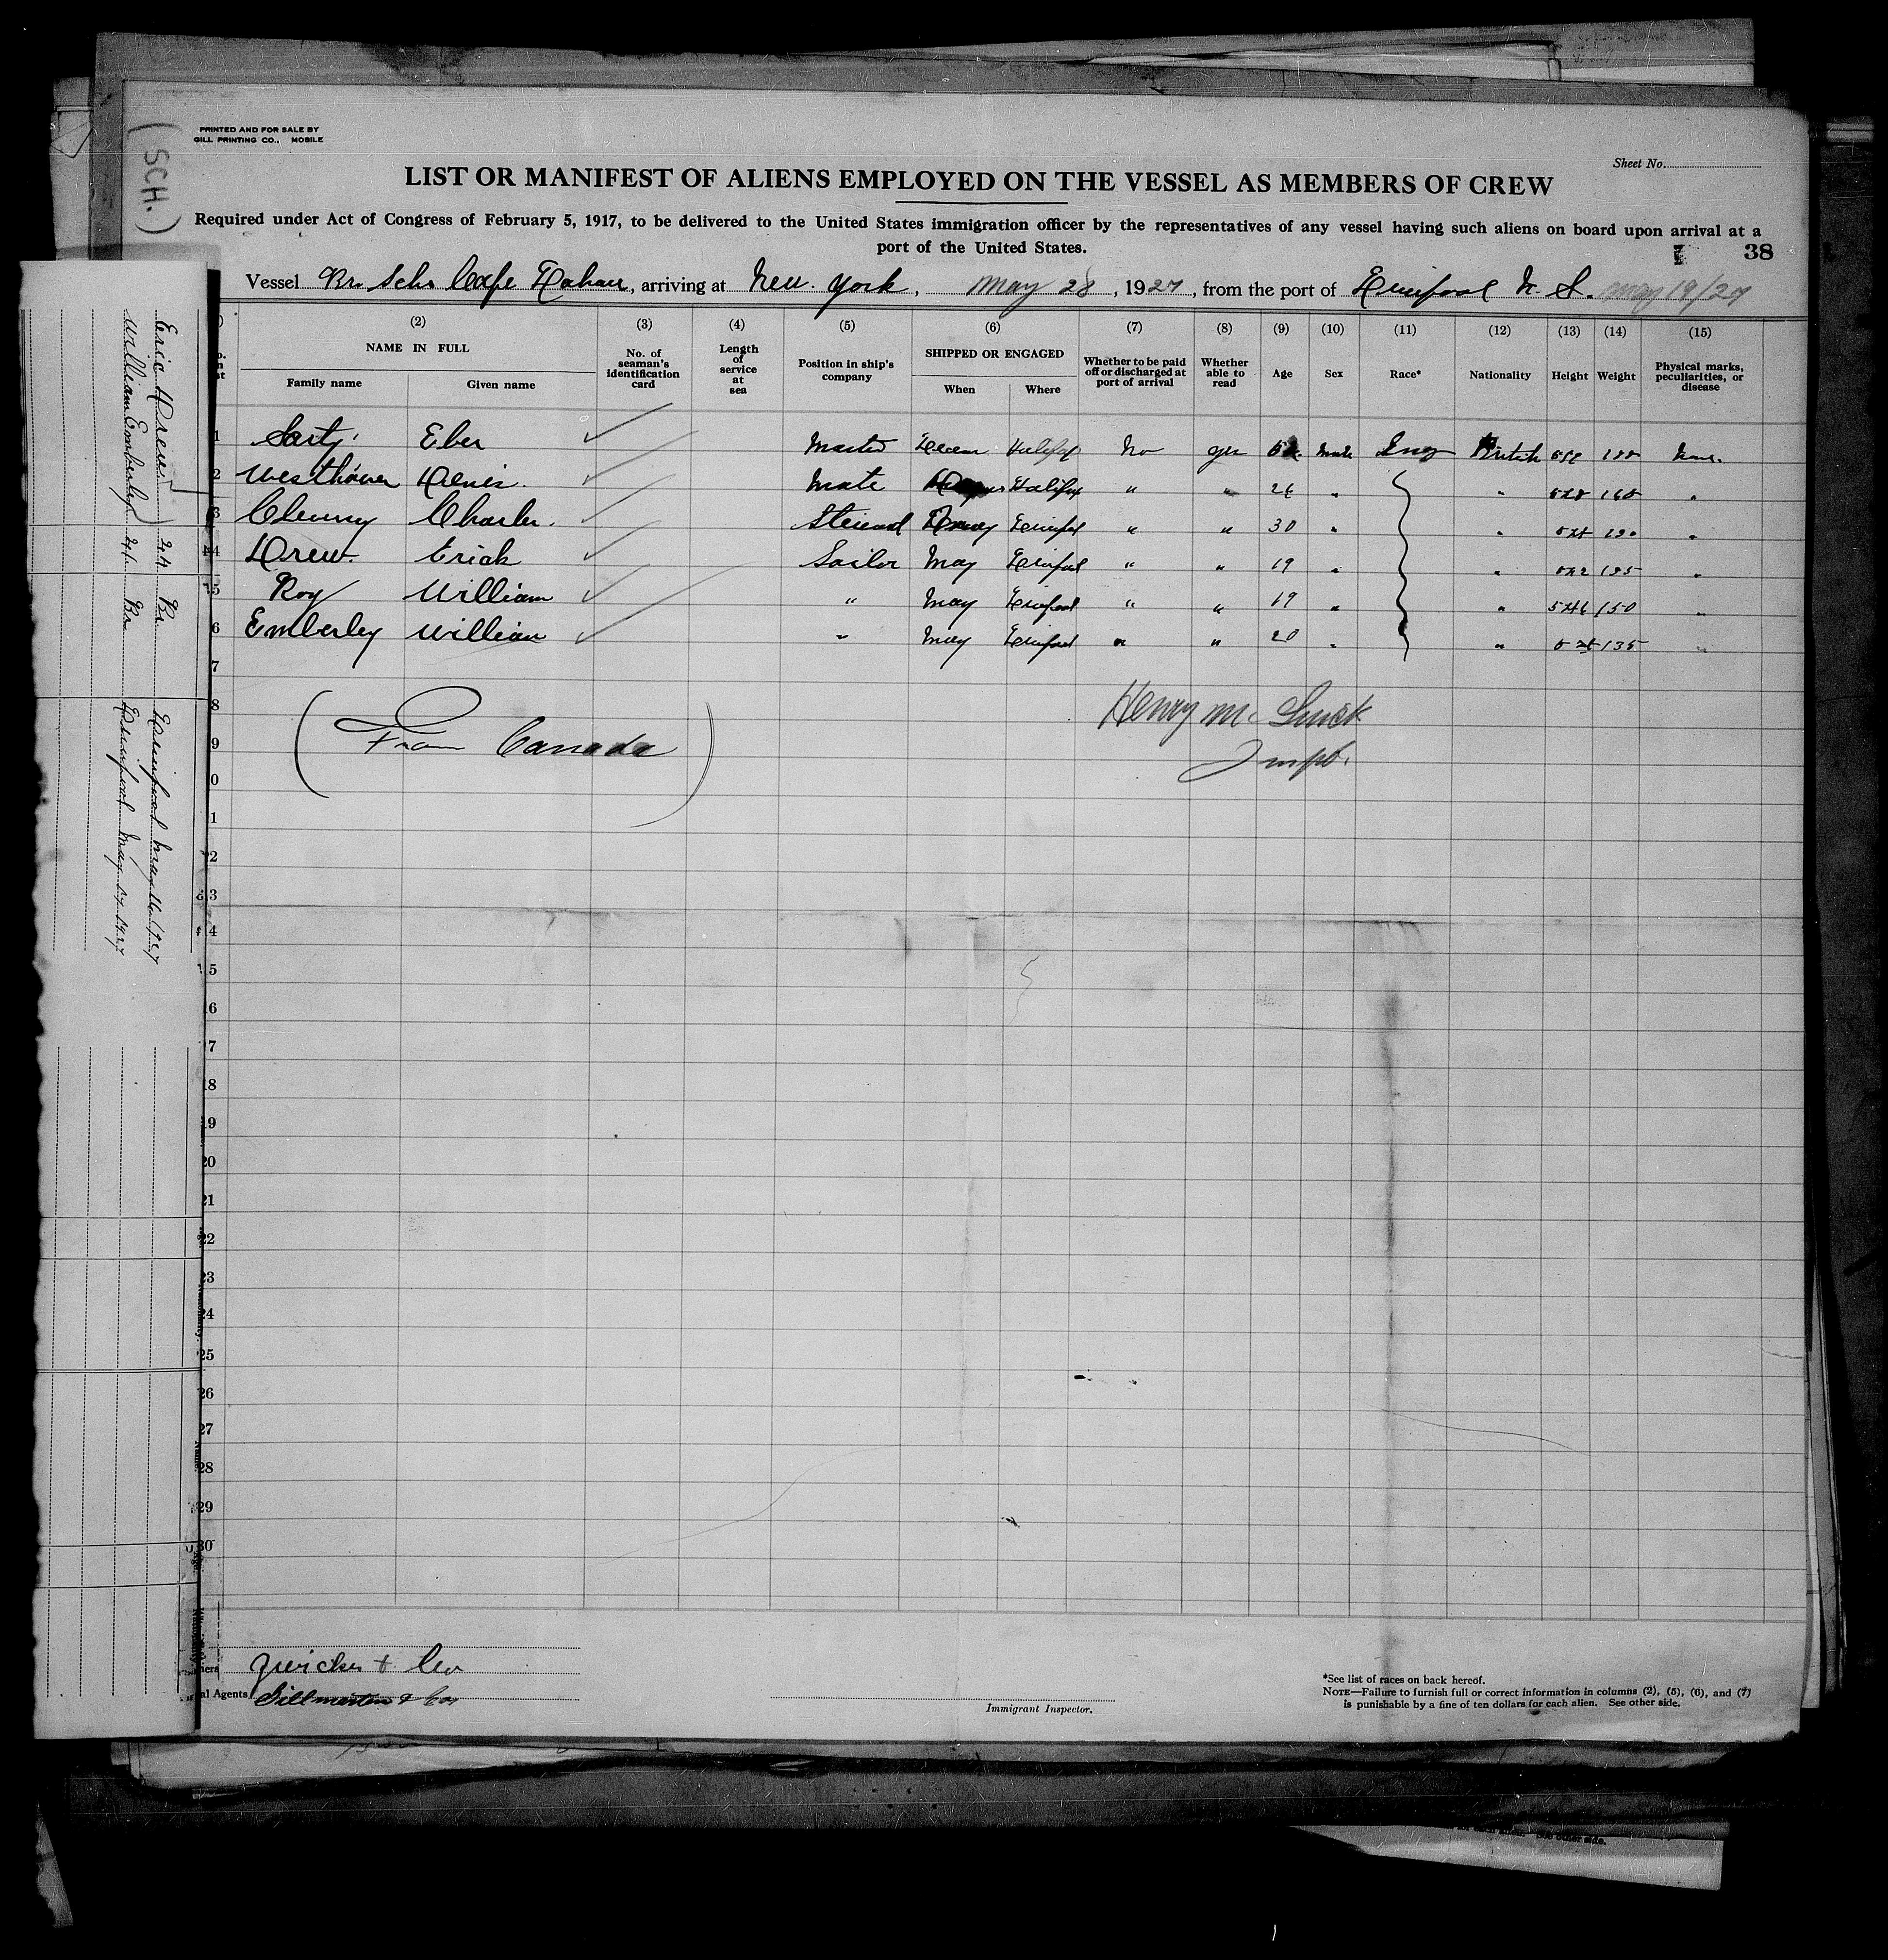 PRINTED AND FOR SALE BY
GILL PRINTING CO., MOBILE
(SCH.)
Sheet No.
LIST OR MANIFEST OF ALIENS EMPLOYED ON THE VESSEL AS MEMBERS OF CREW
Required under Act of Congress of February 5, 1917, to be delivered to the United States immigration officer by the representatives of any vessel having such aliens on board upon arrival at a
port of the United States.
38
Vessel Br. Schr Cape, arriving at New York, May 28, 1927, from the port of Liverpool N. S. May 19/27
(2) (3) (4) (5) (6) (7) (8) (9) (10) (11) (12) (13) (14) (15)
NAME IN FULL
Family name Given name
No. of seaman's identification card
Length of service at sea
Position in ship's company
SHIPPED OR ENGAGED
When Where
Whether to be paid off or discharged at port of arrival
Whether able to read
Age Sex Race* Nationality Height Weight
Physical marks, peculiarities, or disease
1 Sarty Eber Master Halifax No yes Male Eng British
2 Westhaver Mate Halifax " " 26 " " 160 "
3 Charles Steward Liverpool " " 30 " " "
4 Drew Erick Sailor May Liverpool " " 19 " " "
5 Roy William " May Liverpool " " 19 " " 150 "
6 Emberley William " May Liverpool " " 20 " " 135 "
7
8 Henry
9 (From Canada)
0
1
2
3
4
15
16
17
18
19
20
21
22
23
24
25
26
27
28
29
30
Eric Drew 24 Br Liverpool May 16 1927
William Emberley 21 Br Liverpool May 17 1927
Zwicker & Co
al Agents
Immigrant Inspector.
*See list of races on back hereof.
NOTE—Failure to furnish full or correct information in columns (2), (5), (6), and (7)
is punishable by a fine of ten dollars for each alien. See other side.